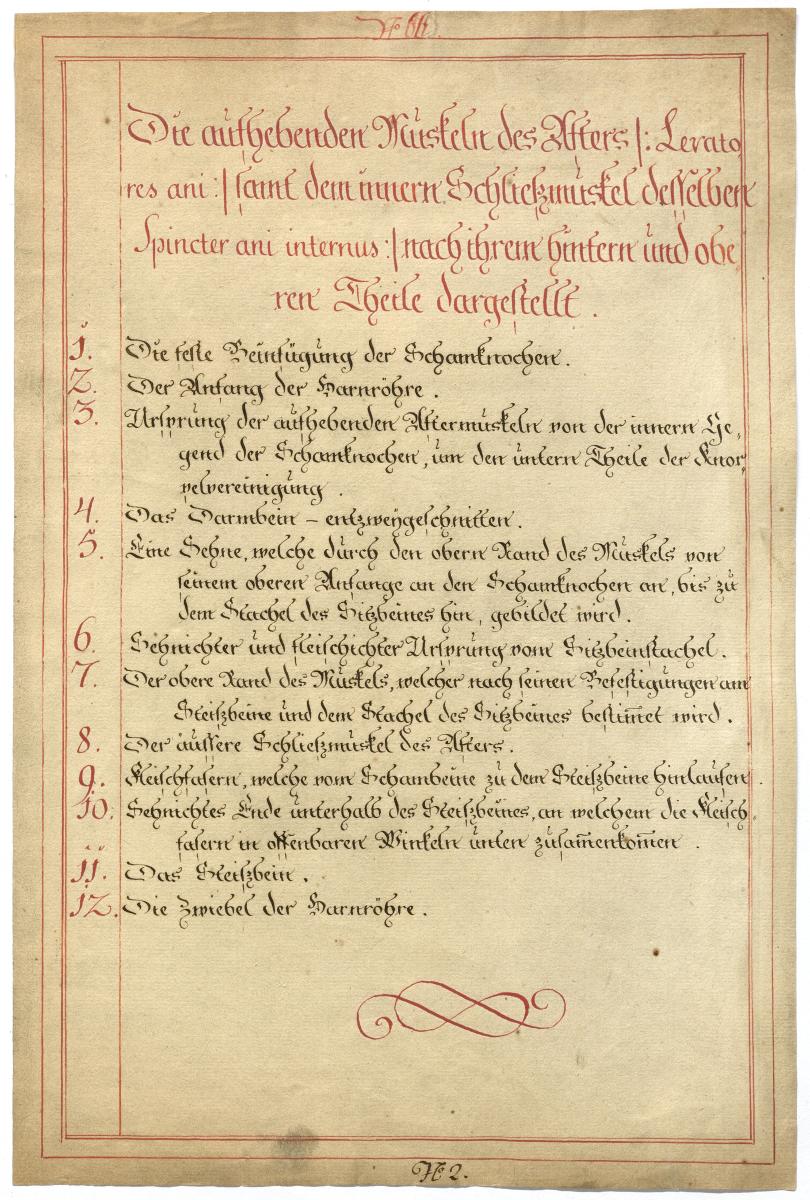 Die aufhebenden Muskeln des Afters |: Levato
res ani :| samt dem innern Schließmuskel desselben
Spincter ani internus :| nach ihrem hintern und obe
ren Theile dargestellt.
1. Die feste Beinfügung der Schamknochen.
2. Der Anfang der Harnröhre.
3. Ursprung der aufhebenden Aftermuskeln von der innern Ge,
gend der Schamknochen, um den untern Theile der Knor,
pelvereinigung.
4. Das Darmbein – entzweygeschnitten.
5. Eine Sehne, welche durch den obern Rand des Muskels von
seinem oberen Anfange an den Schamknochen an, bis zu
dem Stachel des Sitzbeines hin, gebildet wird.
6. Sehnichter und fleischichter Ursprung vom Sitzbeinstachel.
7. Der obere Rand des Muskels, welcher nach seinen Befestigungen am
Steißbeine und dem Stachel des Sitzbeines bestim̅et wird.
8. Der äussere Schließmuskel des Afters.
9. Fleischfasern, welche vom Schambeine zu dem Steißbeine hinlaufen.
10. Sehnichtes Ende unterhalb des Steißbeines, an welchem die Fleisch,
fasern in offenbaren Winkeln unten zusam̅enkom̅en.
11. Das Steißbein.
12. Die Zwiebel der Harnröhre.
No 2.